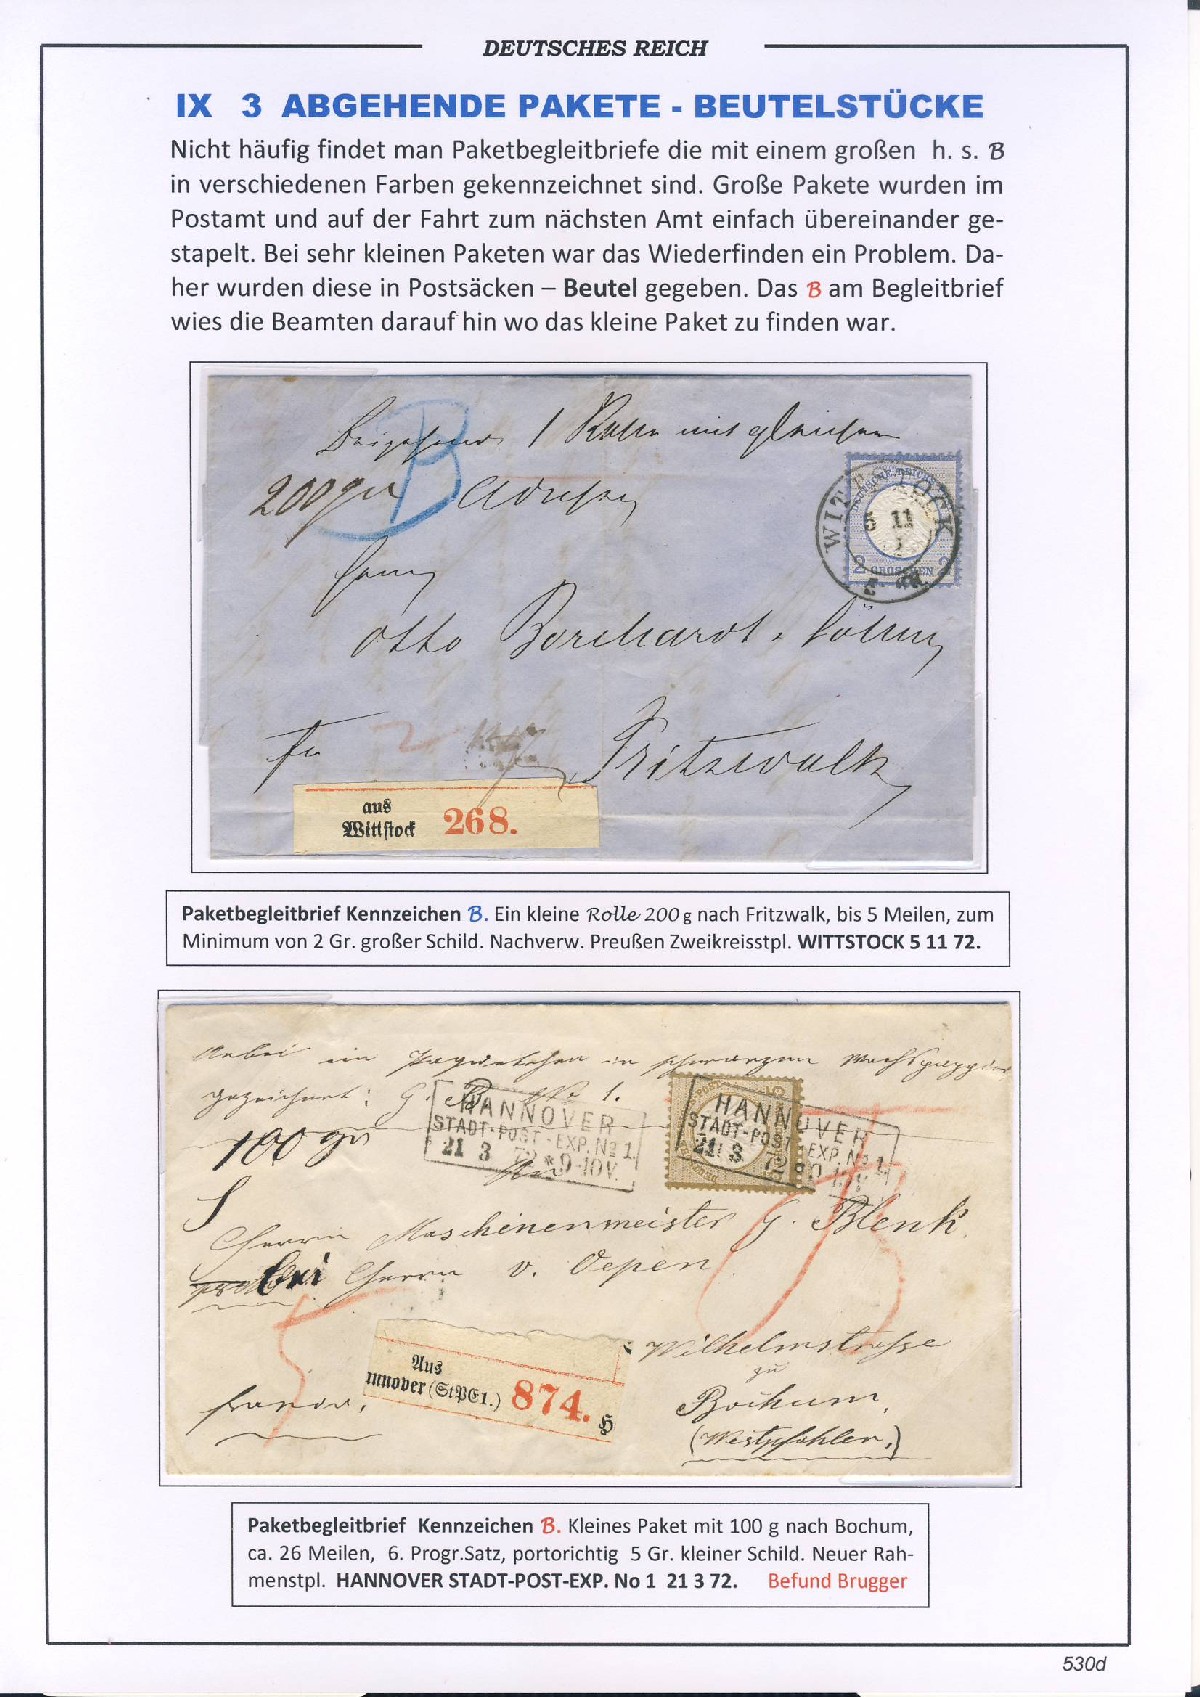 DEUTSCHES REICH
IX 3 ABGEHENDE PAKETE - BEUTELSTÜCKE
Nicht häufig findet man Paketbegleitbriefe die mit einem großen h. s. B
in verschiedenen Farben gekennzeichnet sind. Große Pakete wurden im
Postamt und auf der Fahrt zum nächsten Amt einfach übereinander ge-
stapelt. Bei sehr kleinen Paketen war das Wiederfinden ein Problem. Da-
her wurden diese in Postsäcken – Beutel gegeben. Das B am Begleitbrief
wies die Beamten darauf hin wo das kleine Paket zu finden war.
B
1 Rolle mit gleicher
200 gr
WITTSTOCK
5 11
2 GROSCHEN 2
Otto Borchardt
Fritzwalk
aus
Wittstock 268.
Paketbegleitbrief Kennzeichen B. Ein kleine Rolle 200 g nach Fritzwalk, bis 5 Meilen, zum
Minimum von 2 Gr. großer Schild. Nachverw. Preußen Zweikreisstpl. WITTSTOCK 5 11 72.
Anbei ein in schwarzem
gezeichnet: G. B. No 1.
100 gr
HANNOVER
STADT-POST-EXP. No 1.
21 3 72 * 9-10V.
HANNOVER
STADT-POST-EXP. No 1.
21 3 72
B
Herrn Maschinenmeister G. Blenk
bei Herrn v. Oepen
5
Wilhelmstrasse
zu
Bochum,
(Westphalen.)
franco.
Aus
nnover (StPE1.) 874. H
Paketbegleitbrief Kennzeichen B. Kleines Paket mit 100 g nach Bochum,
ca. 26 Meilen, 6. Progr.Satz, portorichtig 5 Gr. kleiner Schild. Neuer Rah-
menstpl. HANNOVER STADT-POST-EXP. No 1 21 3 72. Befund Brugger
530d